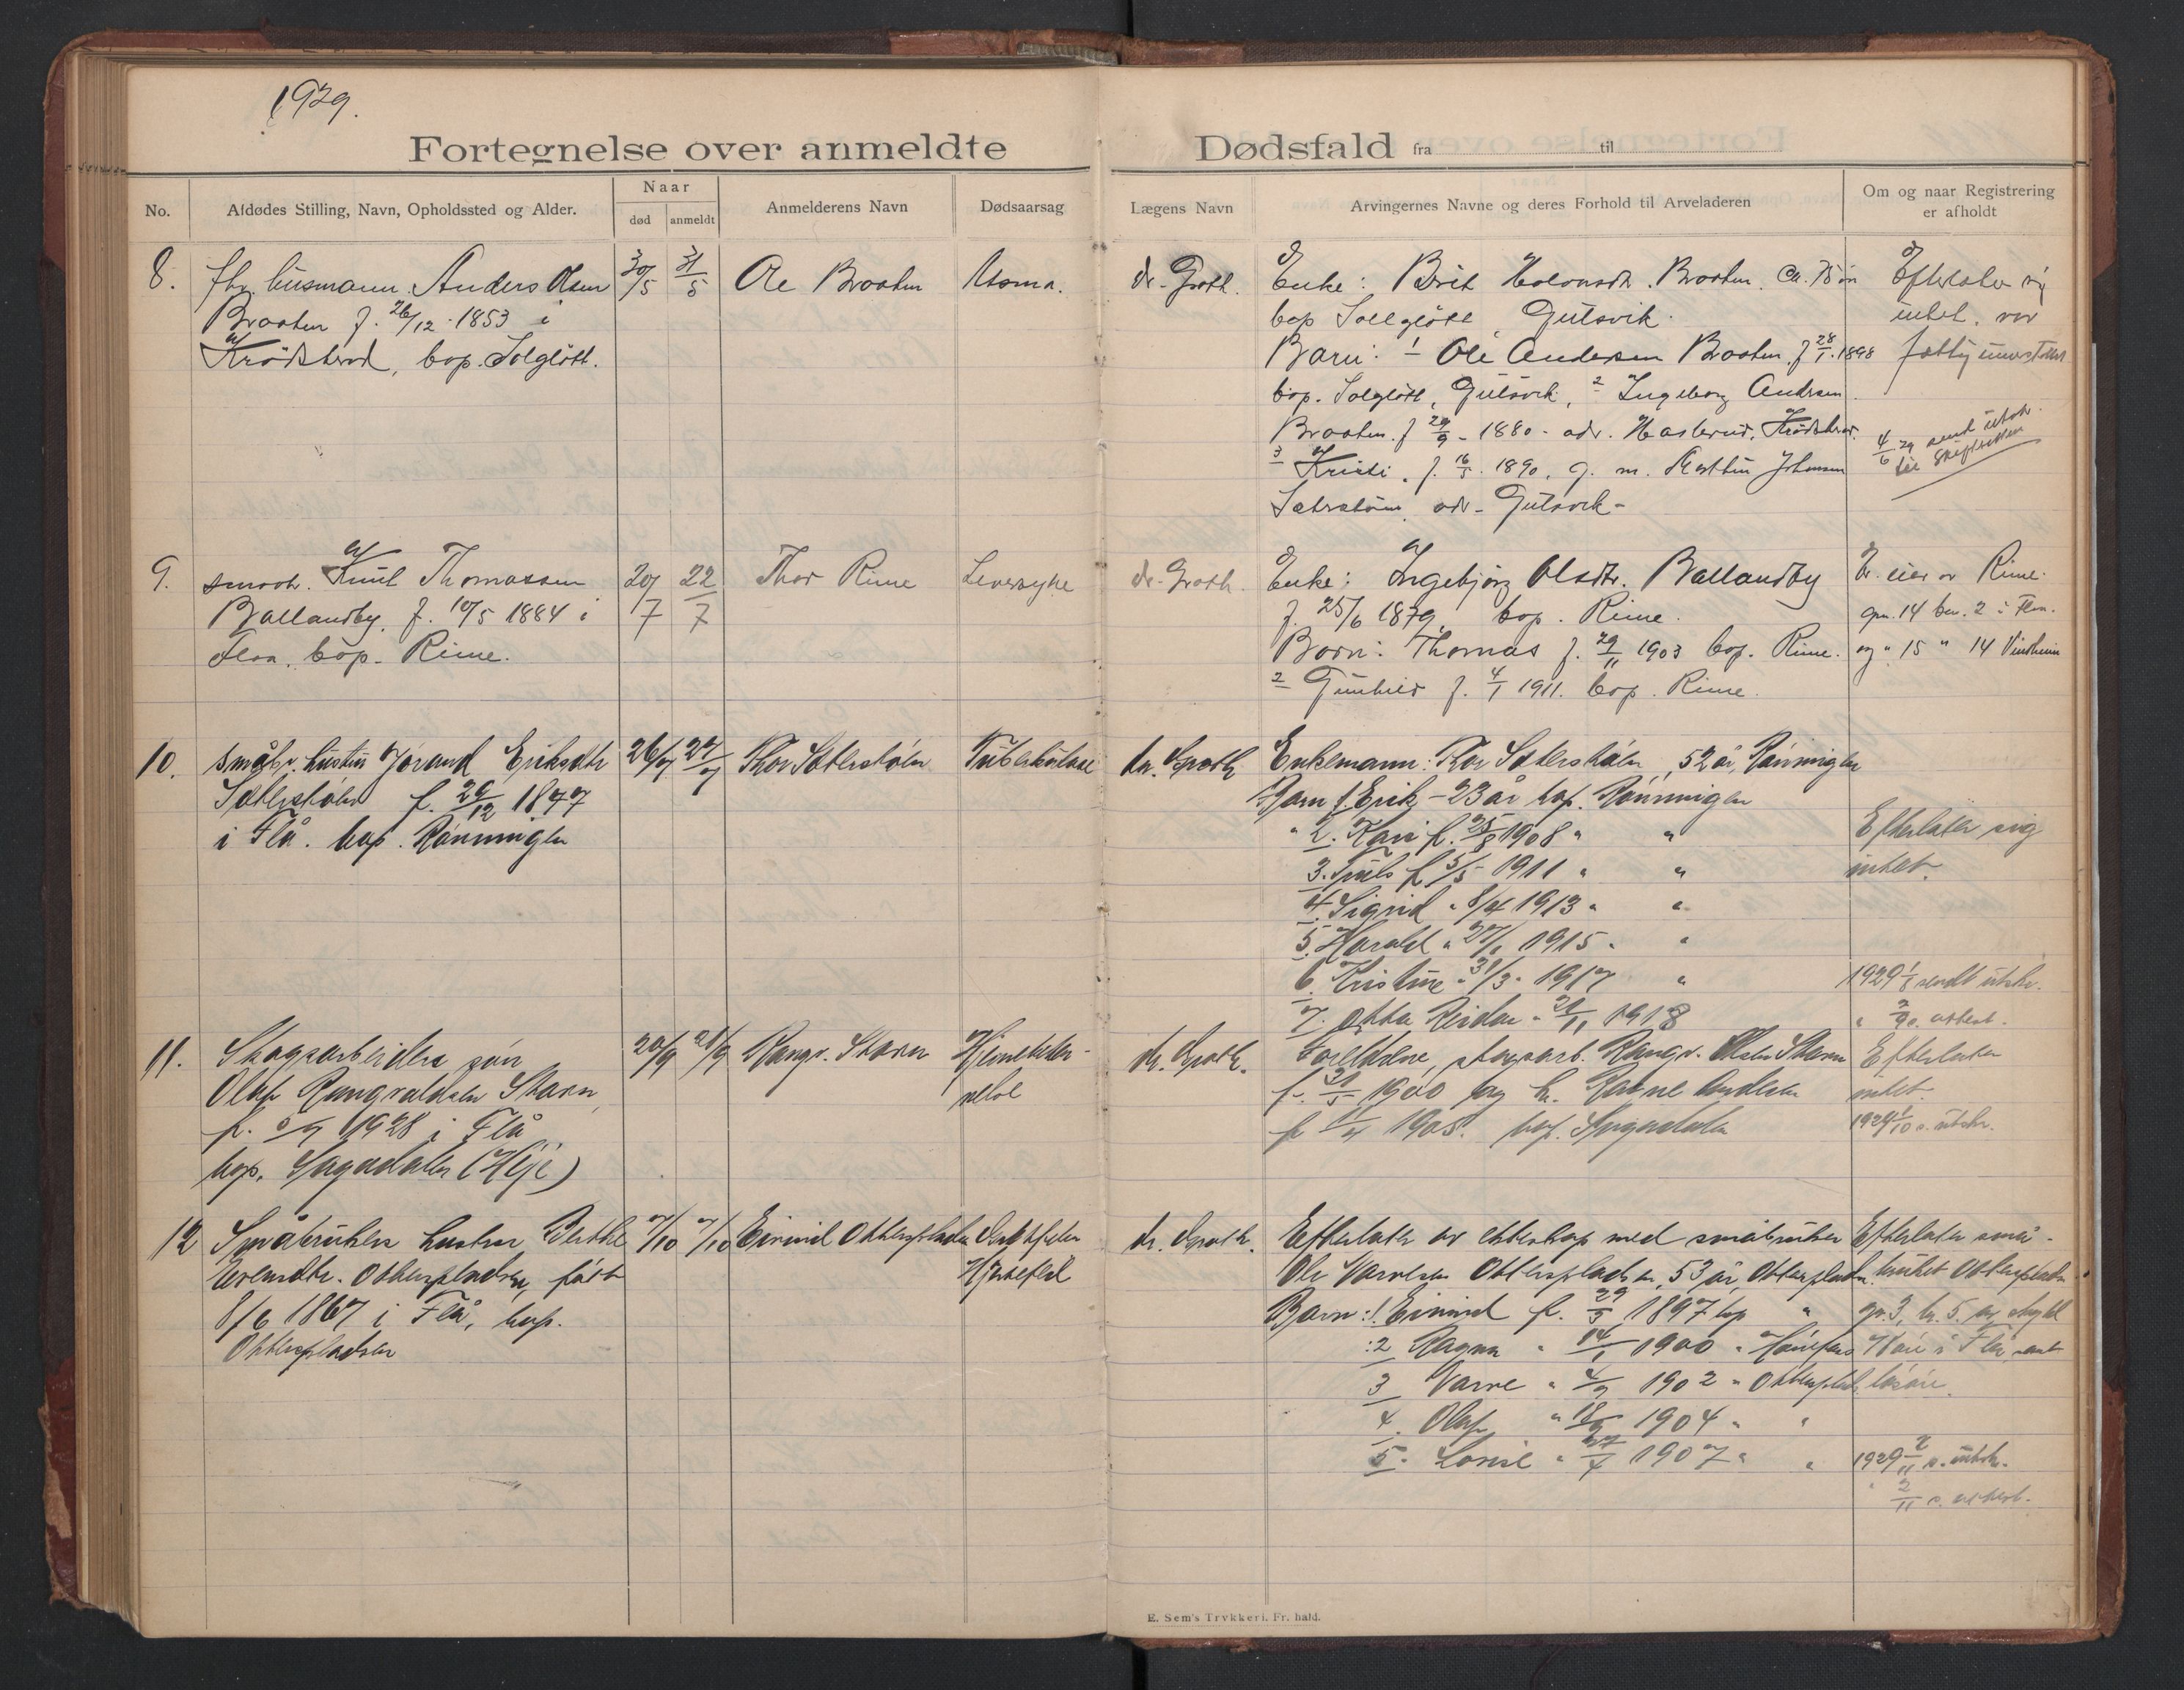 1929.
Fortegnelse over anmeldte Dødsfald fra til
No.
Afdødes Stilling, Navn, Opholdssted og Alder.
Naar
død
anmeldt
Anmelderens Navn
Dødsaarsag
Lægens Navn
Arvingernes Navne og deres Forhold til Arveladeren
Om og naar Registrering
er afholdt
8.
fhv. husmann Anders Olsen
Braaten f. 26/12 1853 i
Krødsherad, bop. Solgløtt.
30/5
31/5
Ole Braaten
dr. Groth.
Enke: Brit Braaten. ca. 75 år
bop Solgløtt, Gulsvik.
Barn: 1 Ole Andersen Braaten f 28/1 1898
bop. Solgløtt, Gulsvik, 2 Ingeborg Andersen
Braaten. f 29/9 - 1880 - adr.
3 Kristi. f. 16/5 1890. g. m. Johansen
adr. Gulsvik -
Efterlater sig
intet. var
4/6 29 sendt utskr.
til skifteretten
9.
smaabr. Knut Thomassen
Ballandby. f. 10/5 1884 i
Flaa. bop. Rime.
20/7
22/7
Thor Rime
Leversyke
dr. Groth.
Enke: Ingebjørg Olsdtr. Ballandby
f. 25/6 1879, bop. Rime.
Barn: Thomas f. 29/11 1903 bop. Rime.
2 Gunhild f. 4/1 1911. bop. Rime.
Er eier av Rime.
gnr. 14 bnr. 2 i Flaa.
og " 15 " 14 Vindheim
10.
småbr. hustru Jørand Eriksdtr
SæterstøLen f. 29/12 1877
i Flå. bop. Rønningen
26/7
27/7
Thor Sæterstølen
Tuberkulose
dr. Groth
Enkemann: Tor Sæterstølen, 52 år, Rønningen
Barn 1. Erik - 23 år bop. Rønningen
" 2. Kari f. 25/8 1908 " "
3. Truls f 5/5 1911 " "
4. Sigrid " 8/4 1913 " "
5. Harald " 27/1 1915 " "
6. Kristine " 31/3 1917 "
7. Otto Reidar " 21/11 1918
Efterlater sig
intet.
1929 1/8 sendt utskr.
11.
Skogsarbeiders søn
Olaf Rangvaldsen Skaren
1928 i Flå
bop. Sagadalen
20/9
21/9
Rangv. Skaren
dr. Groth.
Foreldrene, skogsarb. Rangv. Olsen Skaren
f. 21/5 1900 og h. Ragne
1905. bop. Sagadalen
Efterlater
intet.
1929 1/10 s. utskr.
12
Småbruker hustru Berthe
Otterspladsen, født
8/6 1867 i Flå, bop.
Otterspladsen
7/10
7/10
Eivind Otterspladsen
Hjertefeil
dr. Groth.
Efterlater av ekteskap med småbruker
Ole Otterspladsen, 53 år, Otterspladsen
Barn: 1. Eivind f. 29/5 1897 bop "
: 2 Ragna " 14/1 1900 " Hønefoss
3 Varne " 4/9 1902 " Ottersplads.
4. Olaf " 18/9 1904 " "
5. Lovise " 27/4 1907 " "
Efterlater små-
bruket Otterspladsen
gnr. 3, br. 5. av skyld
i Flå, samt
løsøre.
1929 2/11 s. utskr.
" 2/11 s. attest.
E. Sem's Trykkeri. Fr. hald.